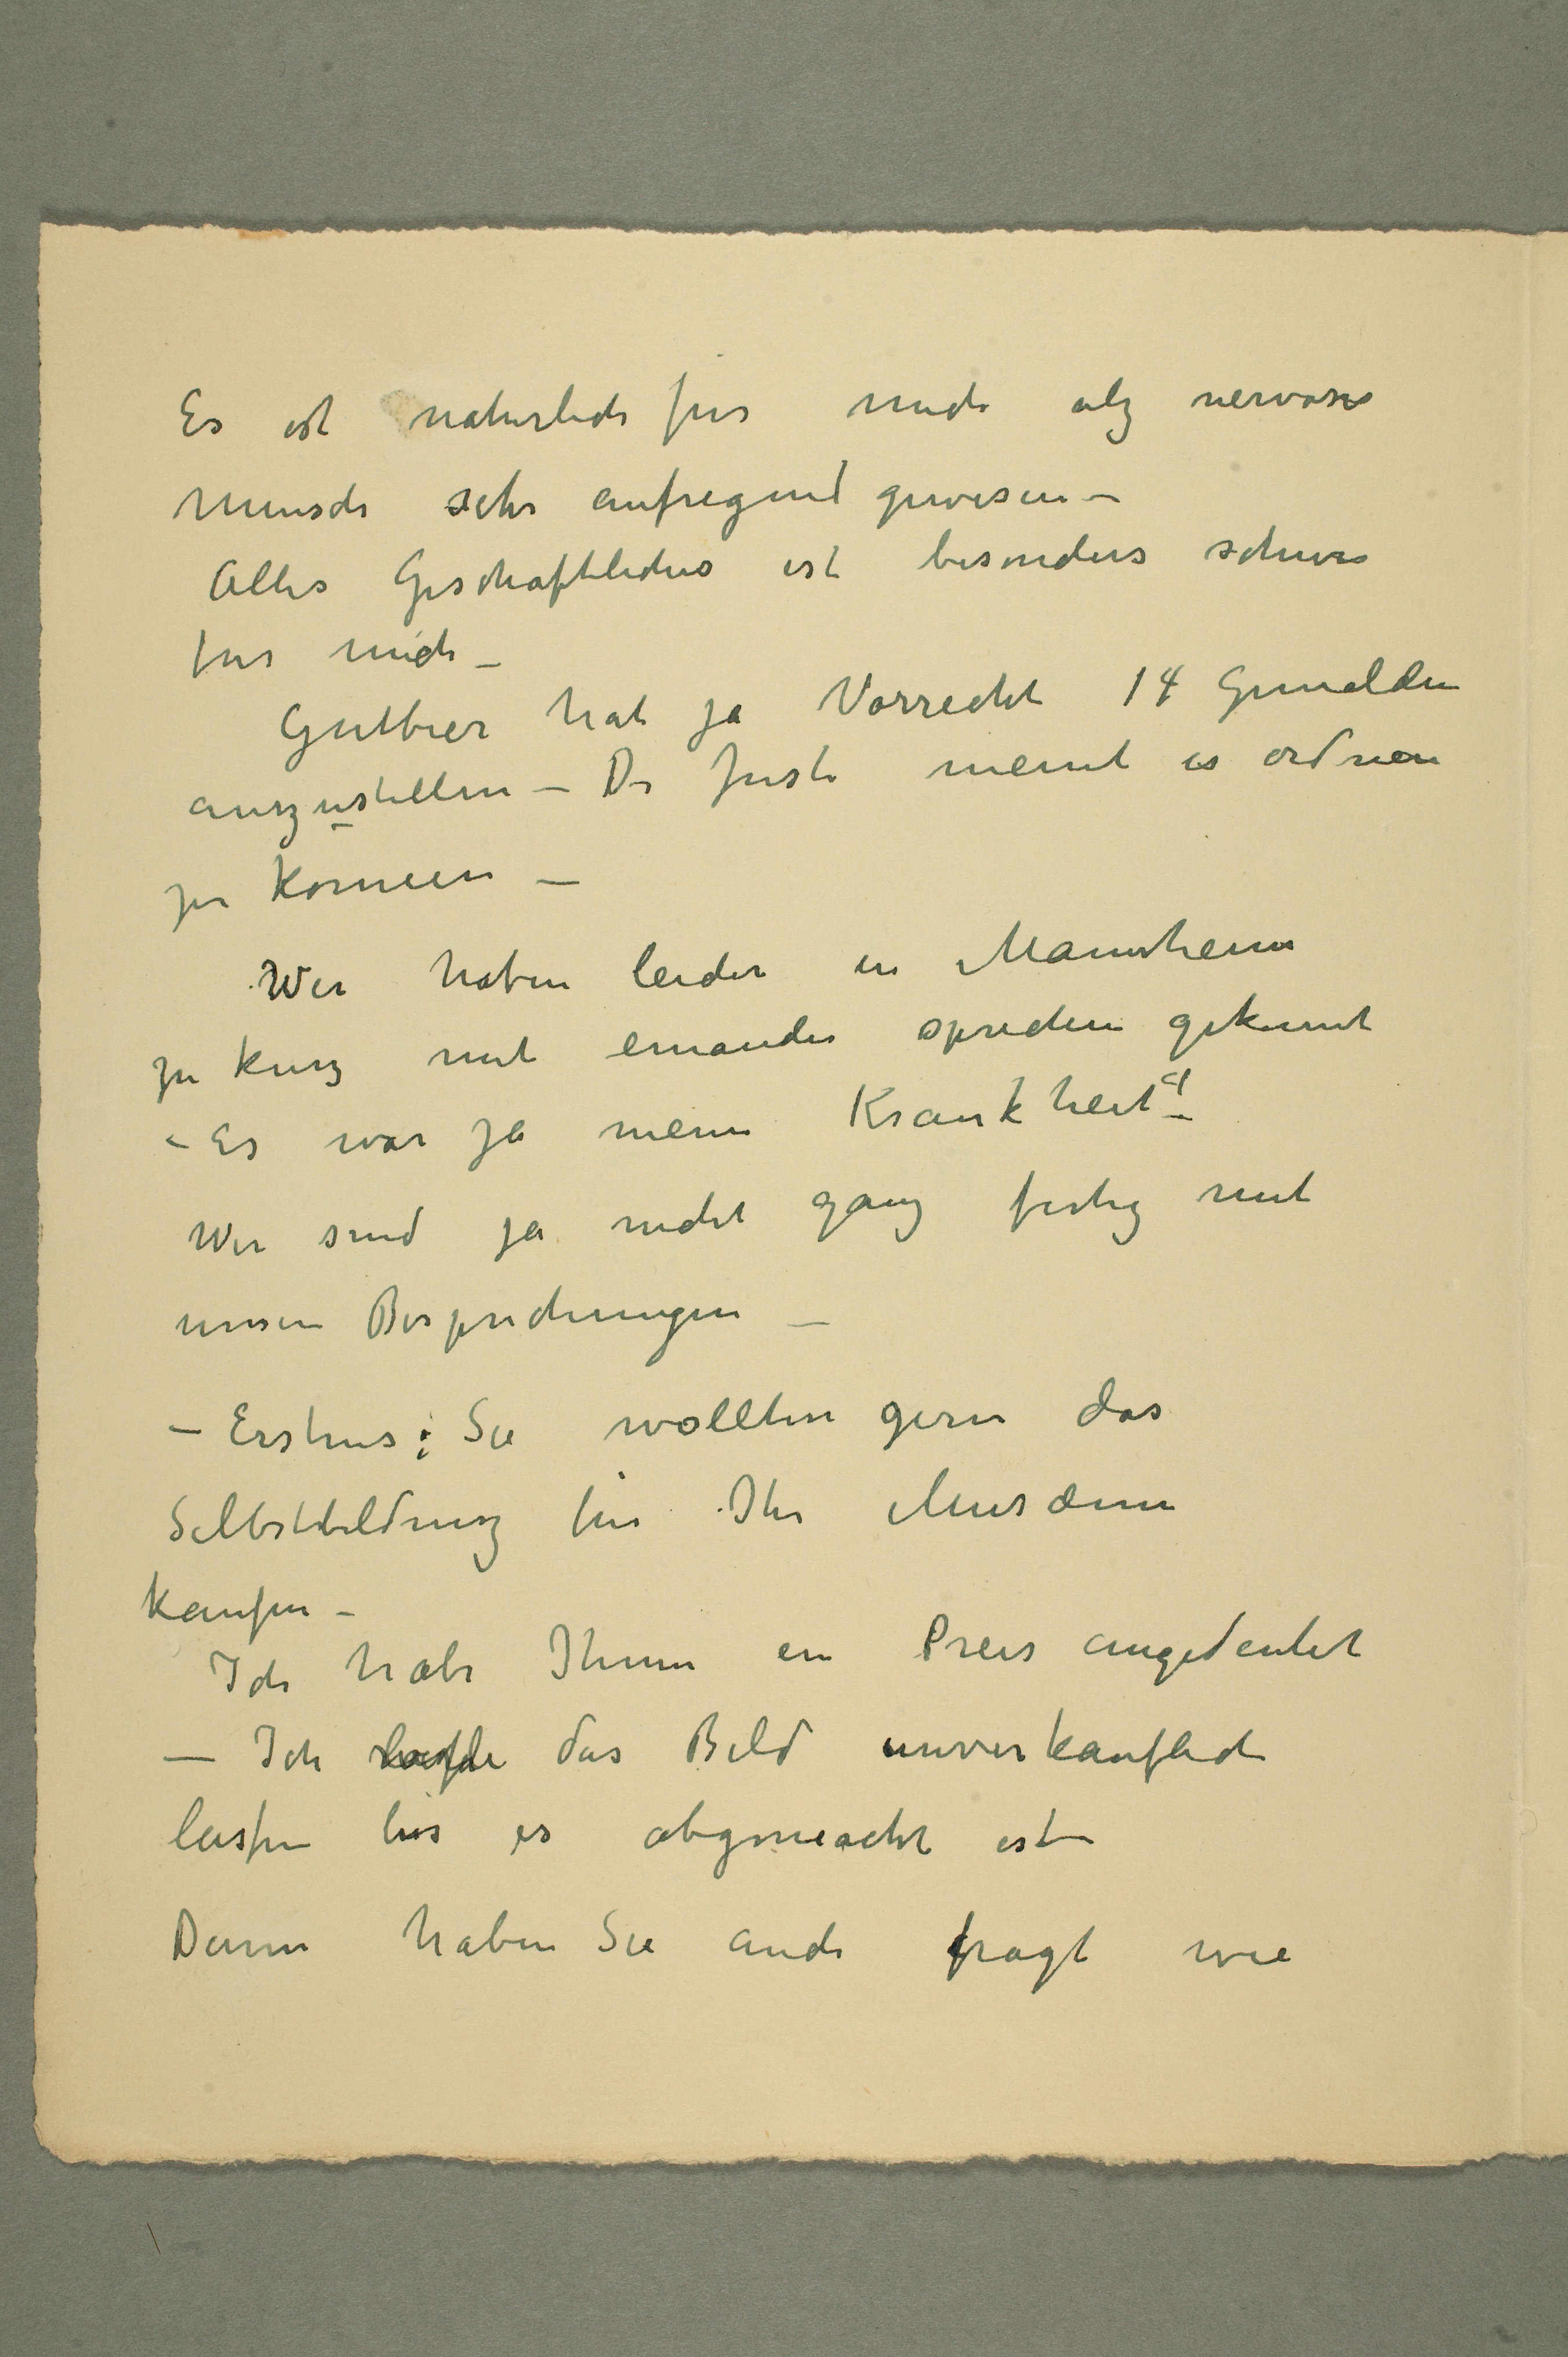 Es ist naturlich fur mich alz nervoser
Mensch sehr aufregend gewesen –
Alles Geschaftliches ist besonders schwer
fur mich –
Gutbier hat ja Vorrecht 14 Gemalden
auszustellen – Dr Justi meint es ordnen
zu konnen –
Wir haben leider in Mannheim
zu kurz mit einander sprechen gekonnt
– Es war ja meine Krankheit –
Wir sind ja nicht ganz fertig mit
unsern Besprechungen –
– Erstens: Sie wollten gern das
Selbstbildniss fur Ihr Musæum
kaufen –
Ich habe Ihnen ein Preis angedeutet
– Ich das Bild unverkauflich
lassen bis es abgemacht ist –
Dann haben Sie auch fragt wie